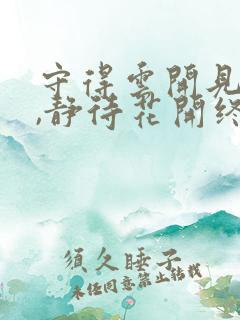 守得雲開見
,静待花開終
須久睡子
未经同意禁止转载